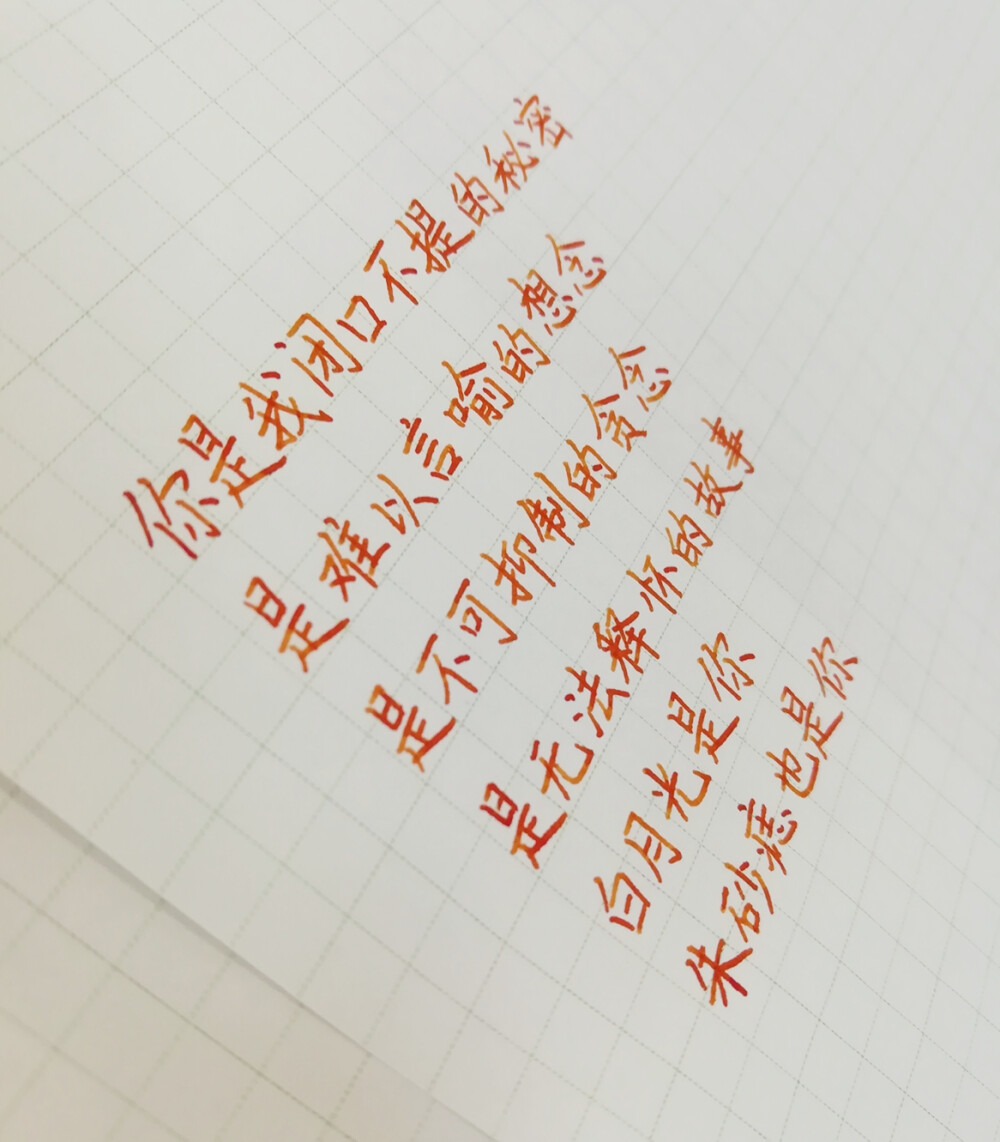 你是我闭口不提的秘密
是难以言喻的想念
是不可抑制的贪念
是无法释怀的故事
白月光是你
朱砂痣也是你